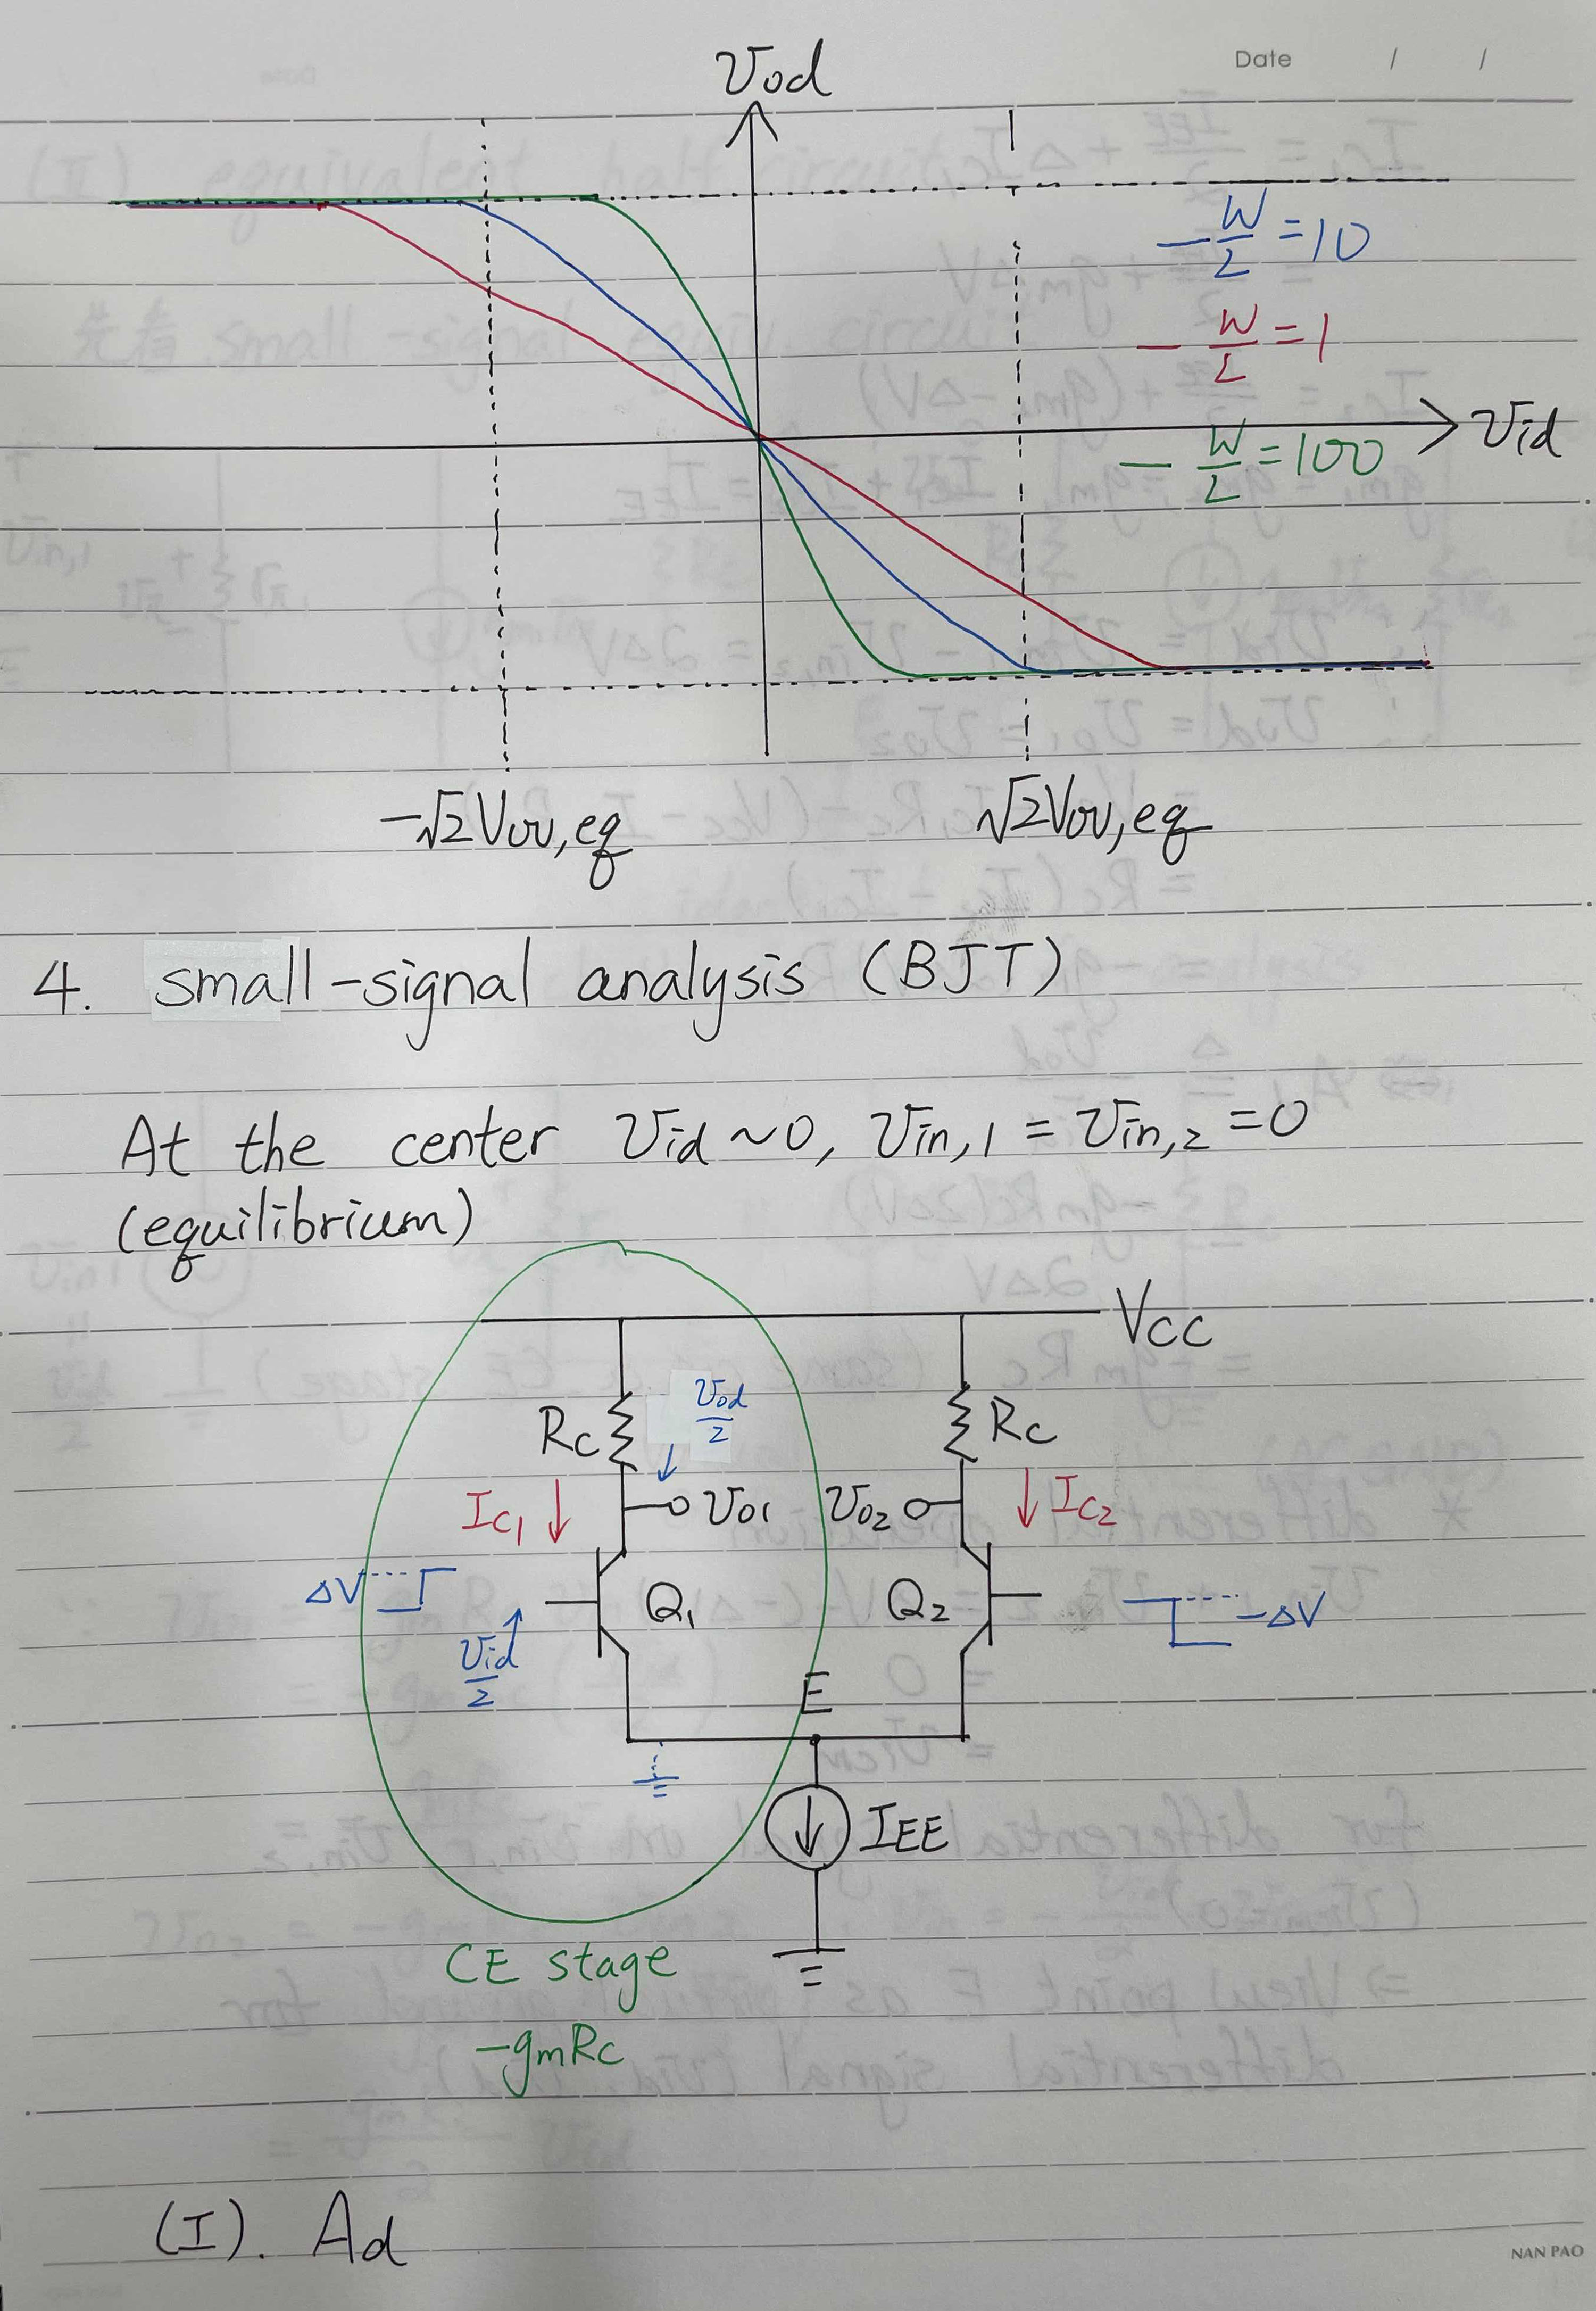 Date / /
Vod
-W/L=10
-W/L=1
Vid
-W/L=100
-√2Vov,eq
√2Vov,eq
4. small-signal analysis (BJT)
At the center Vid~0, Vin,1 = Vin,2 =0
(equilibrium)
Vcc
Vod/2
Rc
Rc
Ic1
Vo1
Vo2
Ic2
ΔV
Q1
Q2
-ΔV
Vid/2
E
IEE
CE stage
-gmRc
(I). Ad
NAN PAO